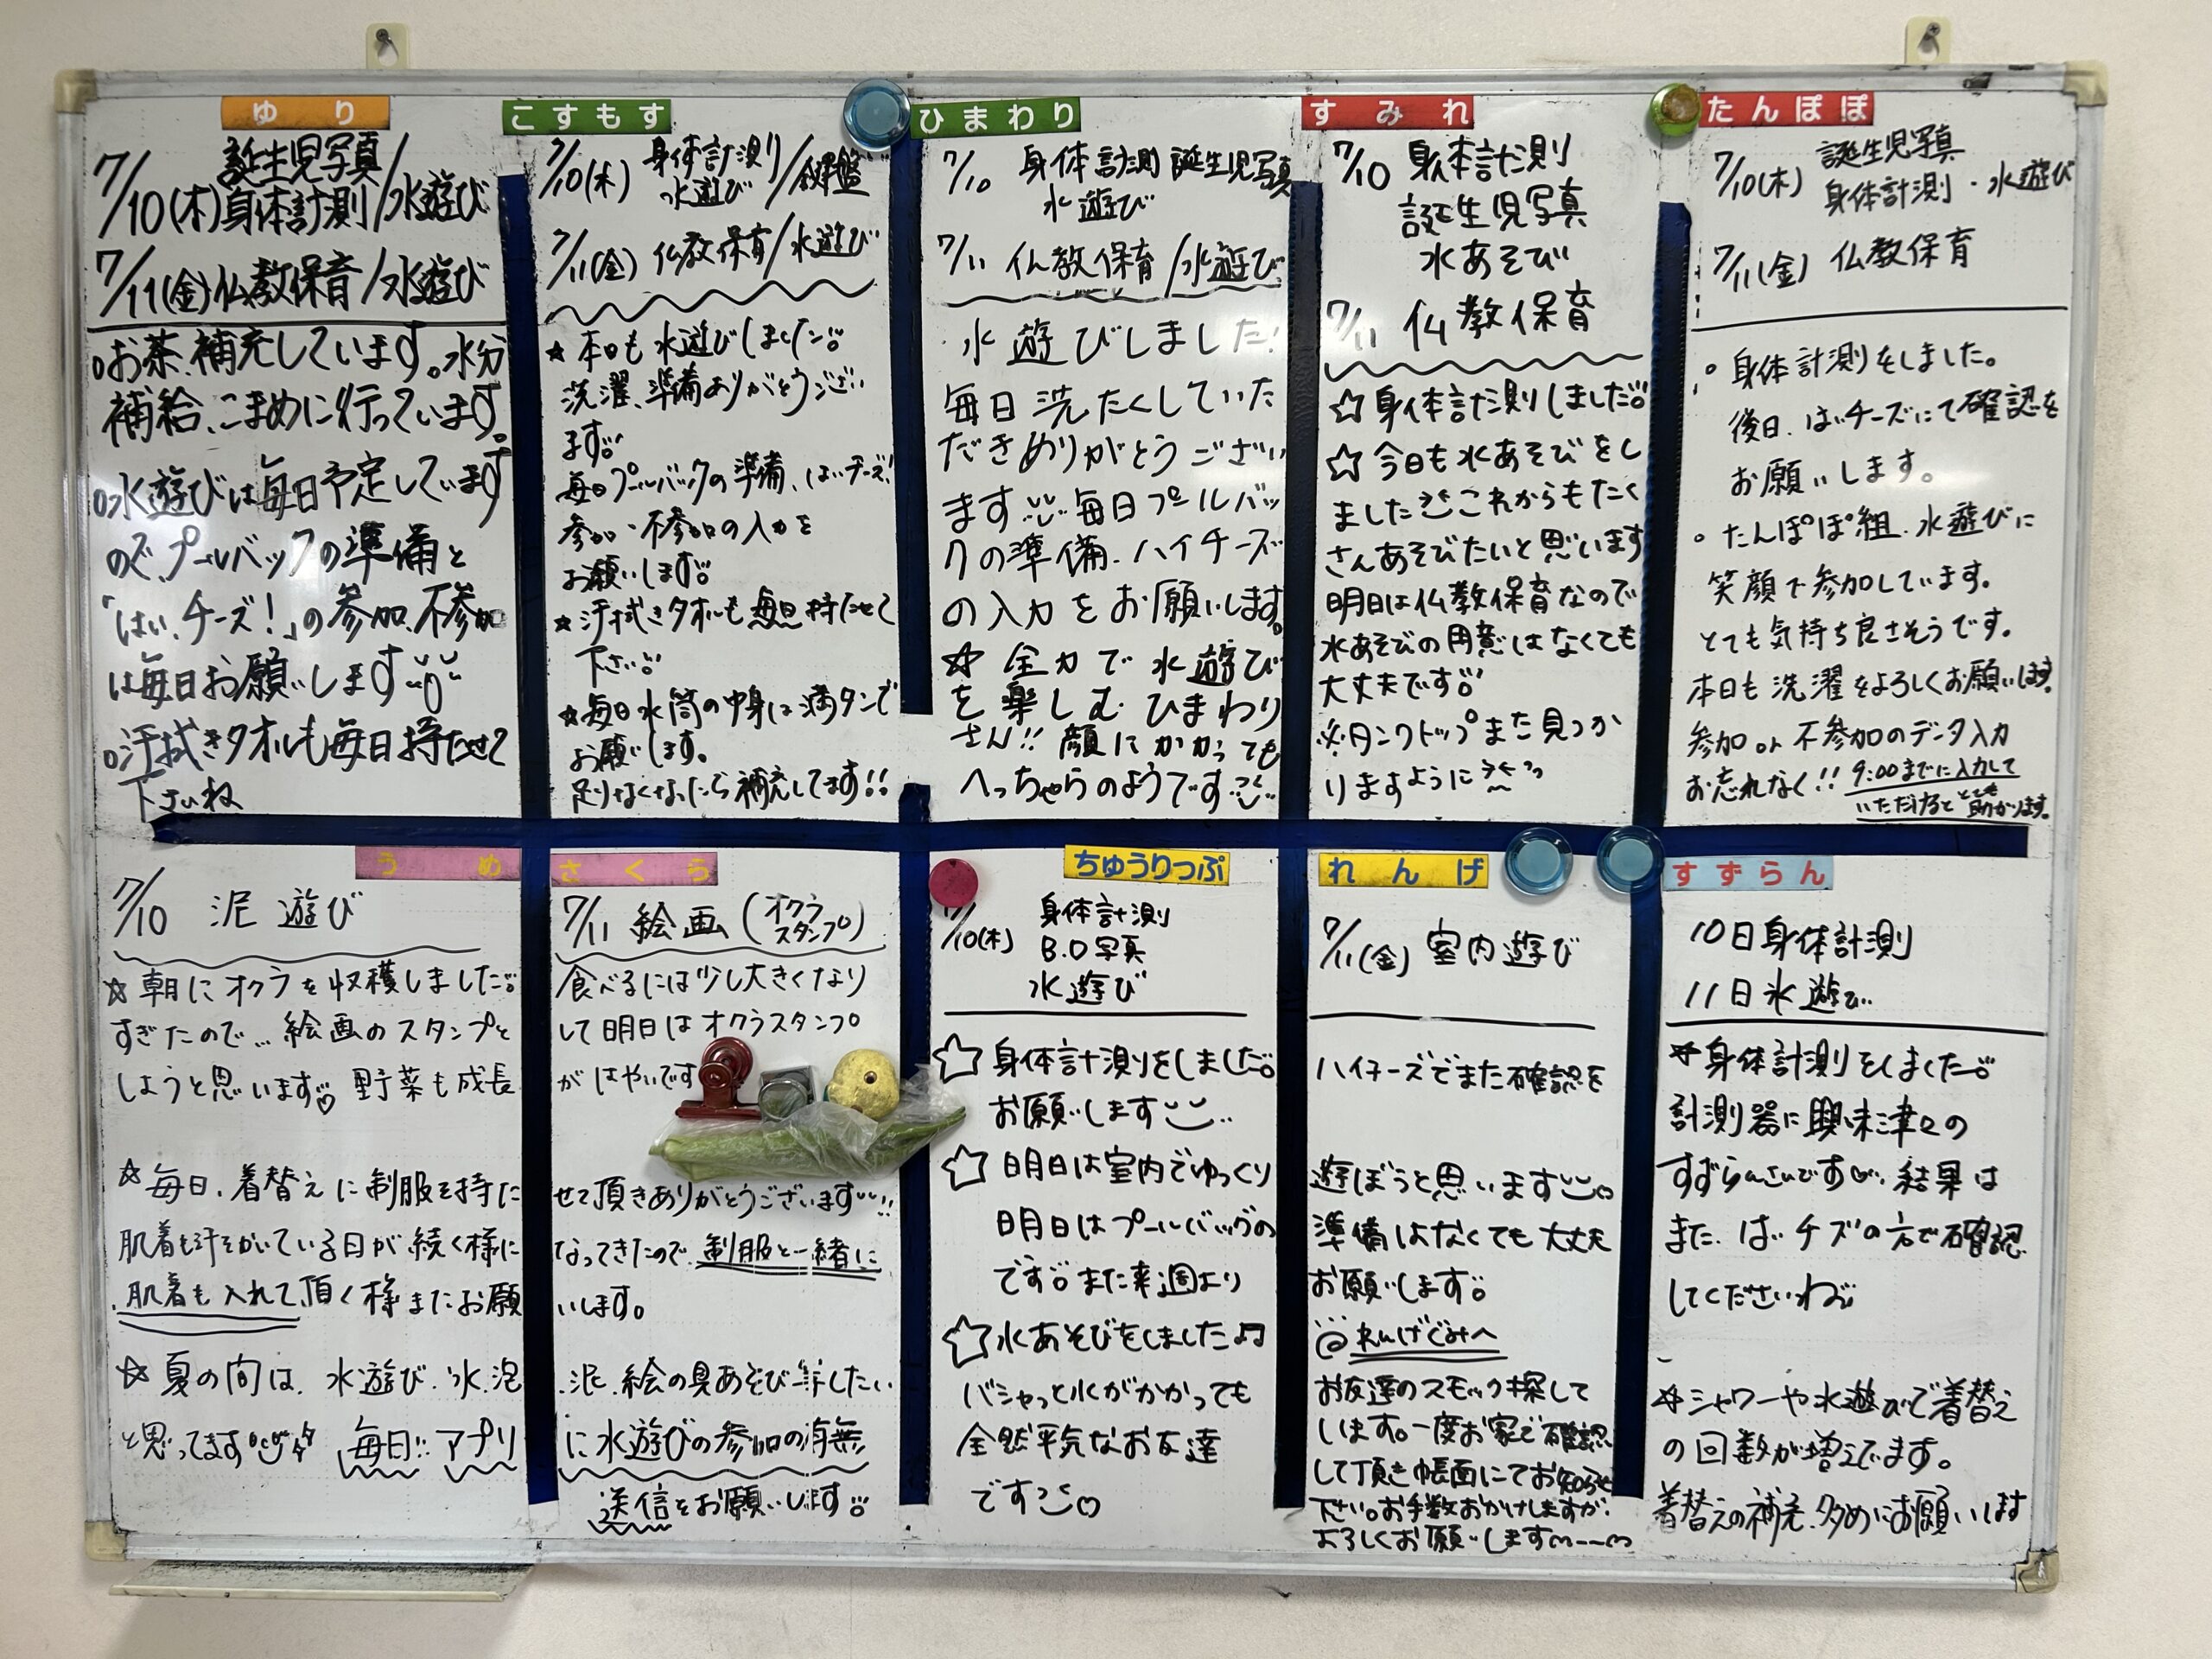 ゆり
誕生児写真
7/10(木)身体計測/水遊び
7/11(金)仏教保育/水遊び
○お茶、補充しています。水分
補給、こまめに行っています。
○水遊びは毎日予定しています
ので、プールバックの準備と
「はい、チーズ!」の参加、不参加
は毎日お願いします
○汗拭きタオルも毎日持たせて
下さいね
こすもす
7/10(木) 身体計測
水遊び/鍵盤
7/11(金) 仏教保育/水遊び
★本日も水遊びしました。
洗濯、準備ありがとうござい
ます。
毎日プールバックの準備、はいチーズ!
参加・不参加の入力を
お願いします。
★汗拭きタオルも毎日持たせて
下さい。
★毎日水筒の中身は満タンで
お願いします。
足りなくなったら補充してます!!
ひまわり
7/10 身体計測 誕生児写真
水遊び
7/11 仏教保育/水遊び
水遊びしました!
毎日洗たくしていた
だきありがとうござい
ます 毎日プールバッ
クの準備、ハイチーズ
の入力をお願いします。
☆全力で水遊び
を楽しむひまわり
さん!! 顔にかかっても
へっちゃらのようです
すみれ
7/10 身体計測
誕生児写真
水あそび
7/11 仏教保育
☆身体計測しました。
☆今日も水あそびをし
ました これからもたく
さんあそびたいと思います
明日は仏教保育なので
水あそびの用意はなくても
大丈夫です。
※タンクトップまた見つか
りますように
たんぽぽ
7/10(木) 誕生児写真
身体計測・水遊び
7/11(金) 仏教保育
○身体計測をしました。
後日、はいチーズにて確認を
お願いします。
○たんぽぽ組、水遊びに
笑顔で参加しています。
とても気持ち良さそうです。
本日も洗濯をよろしくお願いします。
参加or不参加のデータ入力
お忘れなく!! 9:00までに入力して
いただけるととても助かります。
うめ
さくら
7/10 泥遊び
7/11 絵画(オクラスタンプ)
☆朝にオクラを収穫しました。食べるには少し大きくなり
すぎたので…絵画のスタンプとして明日はオクラスタンプ
しようと思います♡ 野菜も成長がはやいです
☆毎日、着替えに制服を持たせて頂きありがとうございます!!
肌着も汗をかいている日が続く様になってきたので、制服と一緒に
肌着も入れて頂く様またお願いします。
☆夏の間は、水遊び、氷、泥、絵の具あそび等したい
と思ってます 毎日!!アプリに水遊びの参加の有無
送信をお願いします。
ちゅうりっぷ
れんげ
7/10(木) 身体計測
B.D写真
水遊び
7/11(金) 室内遊び
☆身体計測をしました。ハイチーズでまた確認を
お願いします
☆明日は室内でゆっくり遊ぼうと思います
明日はプールバッグの準備はなくても大丈夫
です。また来週よりお願いします。
☆水あそびをしました♫
バシャっと水がかかっても
全然平気なお友達
です♡
れんげぐみへ
お友達のスモック探して
います。一度お家で確認
して頂き帳面にてお知らせ
下さい。お手数おかけしますが、
よろしくお願いしますm--m
すずらん
10日身体計測
11日水遊び
☆身体計測をしました。
計測器に興味津々の
すずらんさんです 結果は
また、はいチーズの方で確認
してくださいね
☆シャワーや水遊びで着替え
の回数が増えてます。
着替えの補充、多めにお願いします